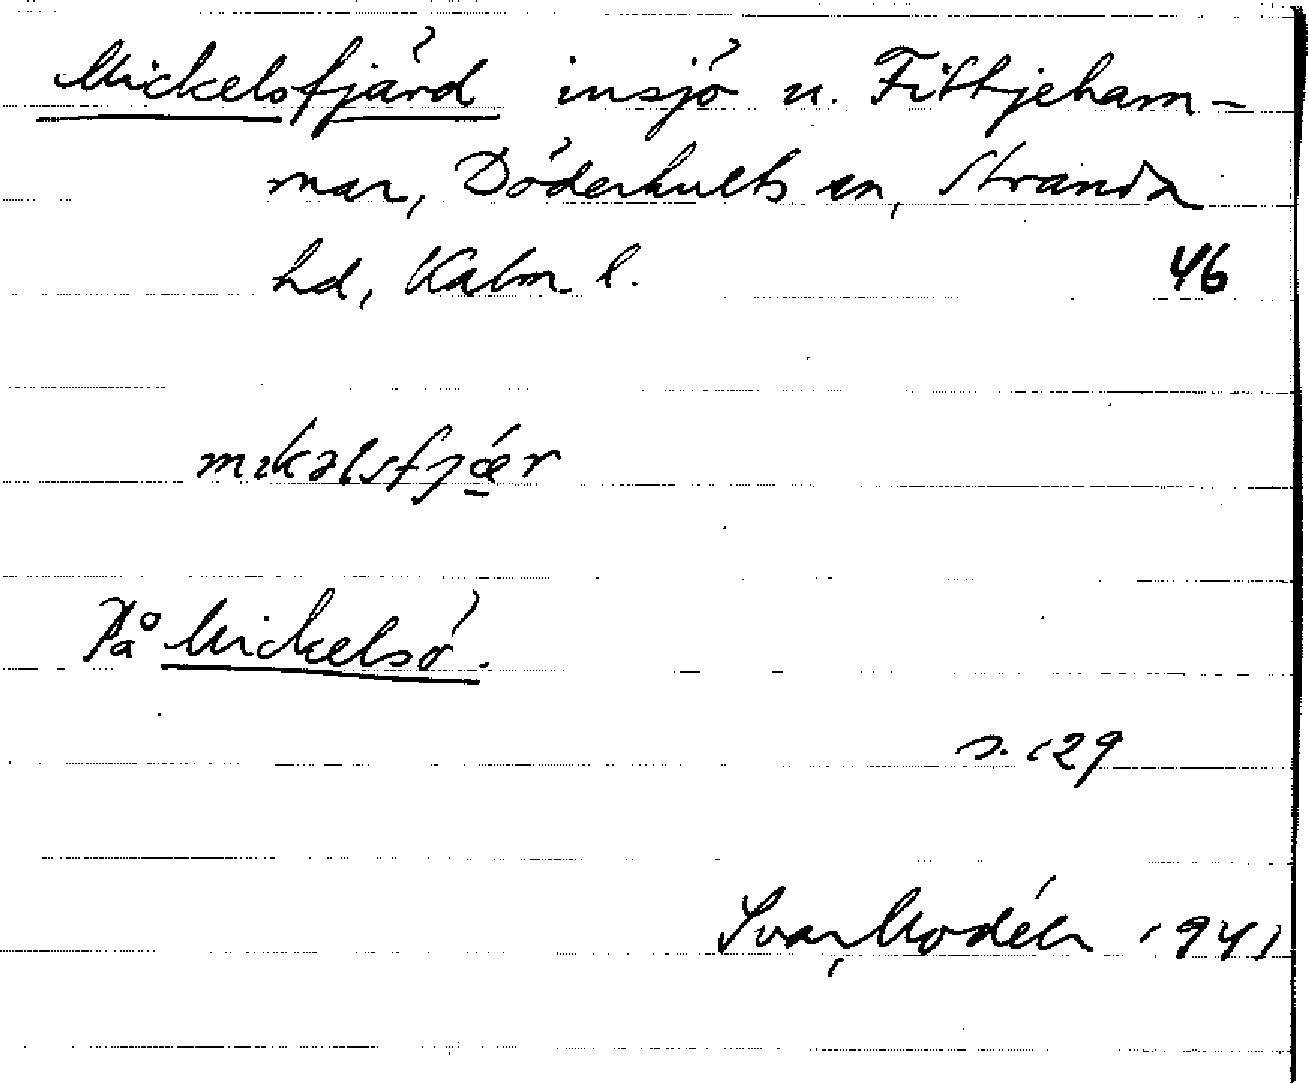 Mickelsfjärd insjö u. Fittjeham-
mar, Döderhults sn, Stranda
hd, Kalm l. 46
mɩkəlsfjǽr
På Mickelsö.
s. 129
Ivar Modéer 1941